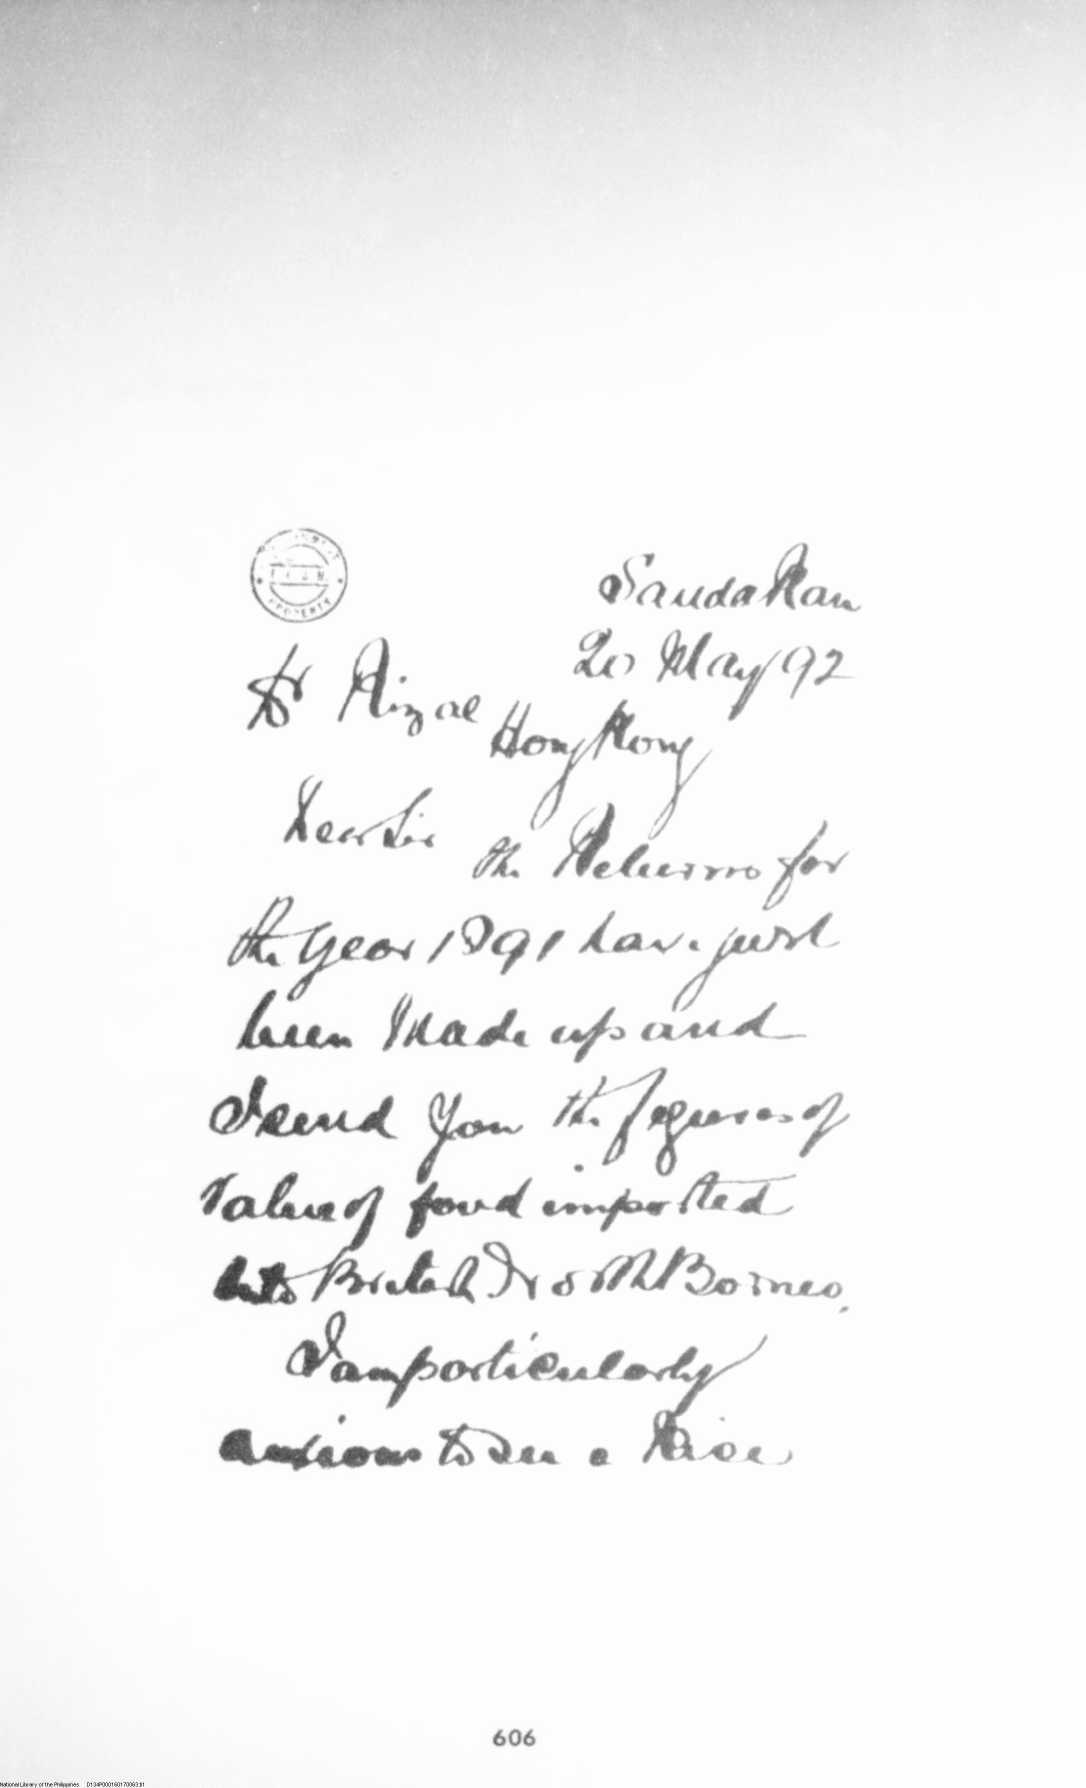 Sandakan
20 May 92
Dr Rizal
Hong Kong
Dear Sir
the Returns for
the year 1891 have just
been made up and
I send you the figures of
value of food imported
into British North Borneo.
I am particularly
anxious to see a Rice
PROPERTY
606
National Library of the Philippines D134P000160170063.tif